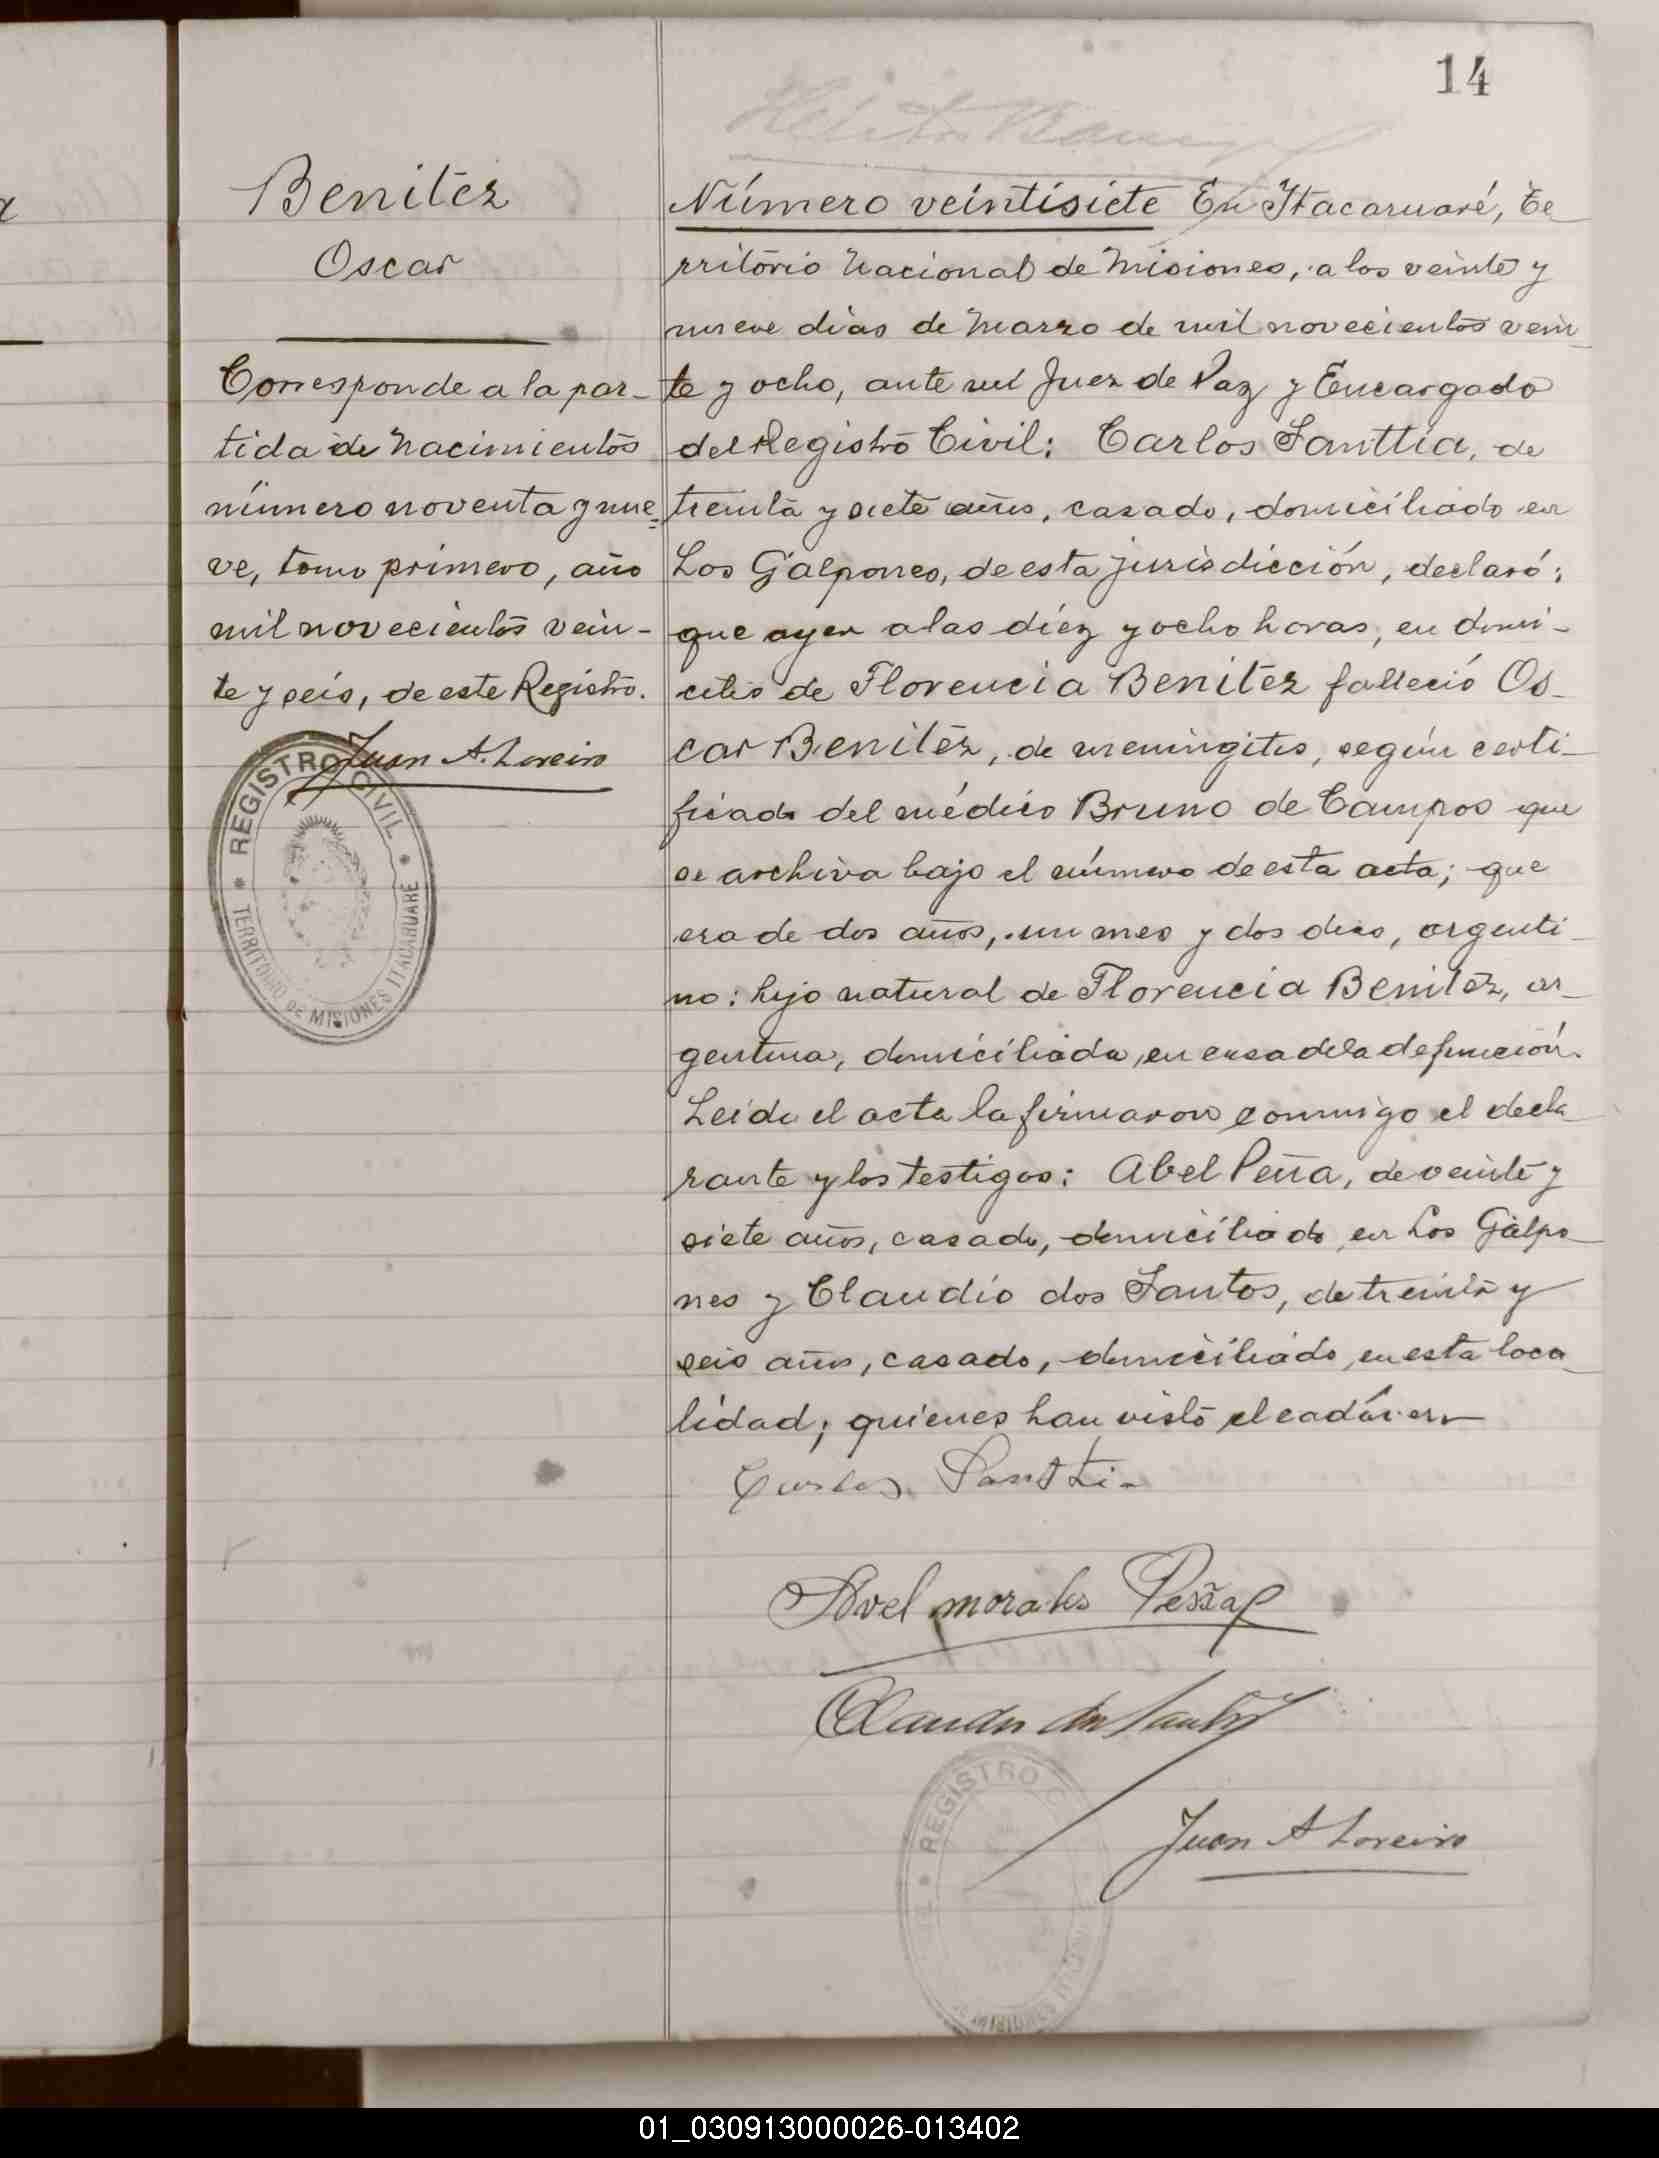 14
Benitez
Oscar
Corresponde a la par-
tida de Nacimientos
número noventa y nue=
ve, tomo primero, año
mil novecientos vein-
te y seis, de este Registro.
Juan A. Loreiro
REGISTRO CIVIL
TERRITORIO DE MISIONES ITACARUARÉ
Número veintisiete En Itacaruaré, Te-
rritorio Nacional de Misiones, a los veinte y
nueve dias de Marzo de mil novecientos vein-
te y ocho, ante mí Juez de Paz y Encargado
del Registro Civil: Carlos Santtia, de
treinta y siete años, casado, domiciliado en
Los Galpones, de esta jurisdicción, declaró:
que ayer a las diéz y ocho horas, en domi-
cilio de Florencia Benitez falleció Os-
car Benitez, de meningitis, según certi-
ficado del médico Bruno de Campos que
se archiva bajo el número de esta acta; que
era de dos años, un mes y dos dias, argenti-
no: hijo natural de Florencia Benitez, ar-
gentina, domiciliada, en casa de la defunción.
Leida el acta la firmaron conmigo el decla-
rante y los testigos: Abel Peña, de veinte y
siete años, casado, domiciliado en Los Galpo-
nes y Claudio dos Santos, de treinta y
seis años, casado, domiciliado, en esta loca-
lidad; quienes han visto el cadáver
Carlos Santti
Avel morales Peña
Claudio dos Santos
Juan A Loreiro
REGISTRO C
01_030913000026-013402